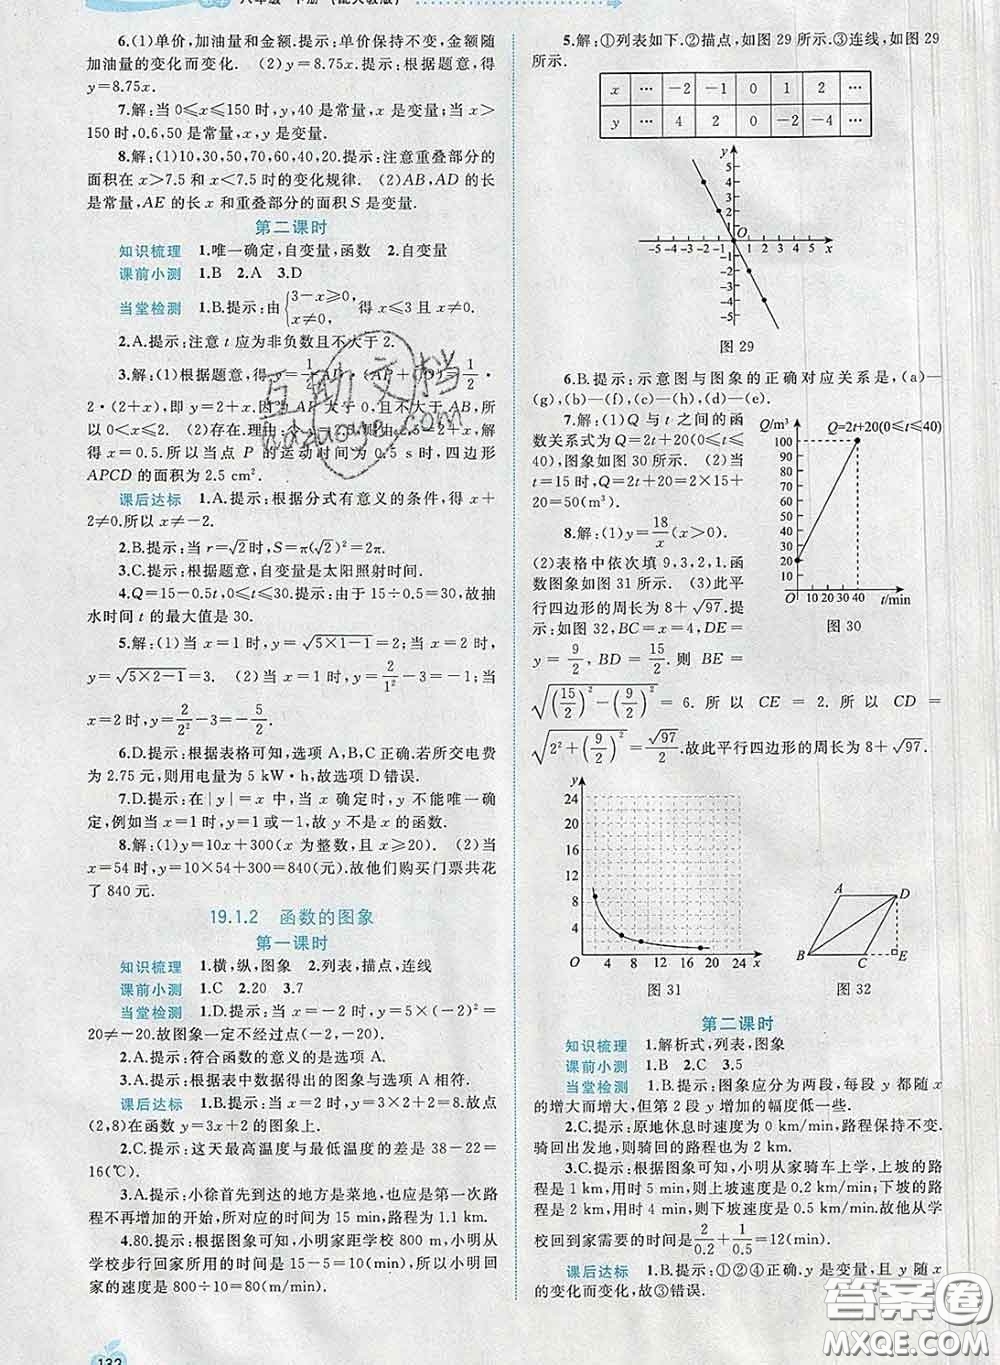 八年级 下册 (配人教版)
6.(1)单价,加油量和金额.提示:单价保持不变,金额随
加油量的变化而变化. (2)y=8.75x.提示:根据题意,得
y=8.75x.
7.解:当 0≤x≤150 时,y,40 是常量,x 是变量;当 x>
150 时,0.6,50 是常量,x,y 是变量.
8.解:(1)10,30,50,70,60,40,20.提示:注意重叠部分的
面积在 x>7.5 和 x<7.5 时的变化规律. (2)AB,AD 的长
是常量,AE 的长 x 和重叠部分的面积 S 是变量.
第二课时
知识梳理 1.唯一确定,自变量,函数 2.自变量
课前小测 1.B 2.A 3.D
当堂检测 1.B.提示:由{3-x≥0, x≠0, 得 x≤3 且 x≠0.
2.A.提示:注意 t 应为非负数且不大于 2.
3.解:(1)根据题意,得 y=1/2 AP·(AB+CD)=1/2·
2·(2+x),即 y=2+x.因为 AP 大于 0,且不大于 AB,所
以 0<x≤2. (2)存在.理由:当 y=2.5 时,2+x=2.5,解
得 x=0.5.所以当点 P 的运动时间为 0.5 s 时,四边形
APCD 的面积为 2.5 cm².
课后达标 1.A.提示:根据分式有意义的条件,得 x+
2≠0.所以 x≠-2.
2.B.提示:当 r=√2时,S=π(√2)²=2π.
3.C.提示:根据题意,自变量是太阳照射时间.
4.Q=15-0.5t,0≤t≤30.提示:由于 15÷0.5=30,故抽
水时间 t 的最大值是 30.
5.解:(1)当 x=1 时,y=√(5×1-1)=2;当 x=2 时,
y=√(5×2-1)=3. (2)当 x=1 时,y=2/1²-3=-1;当
x=2 时,y=2/2²-3=-5/2.
6.D.提示:根据表格可知,选项 A,B,C 正确.若所交电费
为 2.75 元,则用电量为 5 kW·h,故选项 D 错误.
7.D.提示:在|y|=x 中,当 x 确定时,y 不能唯一确
定,例如当 x=1 时,y=1或-1,故 y 不是 x 的函数.
8.解:(1)y=10x+300(x 为整数,且 x≥20). (2)当
x=54 时,y=10×54+300=840(元).故他们购买门票共花
了 840 元.
19.1.2 函数的图象
第一课时
知识梳理 1.横,纵,图象 2.列表,描点,连线
课前小测 1.C 2.20 3.7
当堂检测 1.D.提示:当 x=-2 时,y=5×(-2)²=
20≠-20.故图象一定不经过点(-2,-20).
2.A.提示:符合函数的意义的是选项 A.
3.A.提示:根据表中数据得出的图象与选项 A 相符.
课后达标 1.B.提示:当 x=2 时,y=3×2+2=8.故点
(2,8)在函数 y=3x+2 的图象上.
2.C.提示:这天最高温度与最低温度的差是 38-22=
16(℃).
3.A.提示:小徐首先到达的地方是菜地,也是第一次路
程不再增加的开始,所对应的时间为 15 min,路程为 1.1 km.
4.80.提示:根据图象可知,小明家距学校 800 m,小明从
学校步行回家所用的时间是 15-5=10(min),所以小明回
家的速度是 800÷10=80(m/min).
132
5.解:①列表如下.②描点,如图 29 所示.③连线,如图 29
所示.
x ··· -2 -1 0 1 2 ···
y ··· 4 2 0 -2 -4 ···
y
5
4
3
2
1
O
-5-4-3-2-1 1 2 3 4 5
x
-1
-2
-3
-4
-5
图 29
6.B.提示:示意图与图象的正确对应关系是,(a)—
(g),(b)—(f),(c)—(h),(d)—(e).
7.解:(1)Q 与 t 之间的函
数关系式为 Q=2t+20(0≤t≤
40),图象如图 30 所示. (2)当
t=15 时,Q=2t+20=2×15
+20=50(m³).
Q/m³ Q=2t+20(0≤t≤40)
100
90
80
70
60
50
40
30
20
10
O 10 20 30 40 t/min
图 30
8.解:(1)y=18/x(x>0).
(2)表格中依次填 9,3,2,1.函
数图象如图 31 所示. (3)此平
行四边形的周长为 8+√97.提
示:如图 32,BC=x=4,DE=
y=9/2,BD=15/2.则 BE=
√((15/2)²-(9/2)²)=6.所以 CE=2.所以 CD=
√(2²+(9/2)²)=√97/2.故此平行四边形的周长为 8+√97.
y
24
20
16
12
8
4
O 4 8 12 16 20 24 x
图 31
A D
B C E
图 32
第二课时
知识梳理 1.解析式,列表,图象
课前小测 1.B 2.C 3.5
当堂检测 1.B.提示:图象应分为两段,每段 y 都随 x
的增大而增大,但第 2 段 y 增加的幅度低一些.
2.C.提示:原地休息时速度为 0 km/min,路程保持不变.
骑回出发地,则骑回的路程也为 2 km.
3.C.提示:根据图象可知,小明从家骑车上学,上坡的路
程为 1 km,用时 5 min,则上坡速度是 0.2 km/min;下坡的路
程为 2 km,用时 4 min,则下坡速度是 0.5 km/min.故他从学
校回到家需要的时间是2/0.2+1/0.5=12(min).
课后达标 1.B.提示:①②④正确.y 是变量,y 随 x
的变化而变化,故③错误.
互助文档
hazuoye.com
答案圈
MXQE.COM